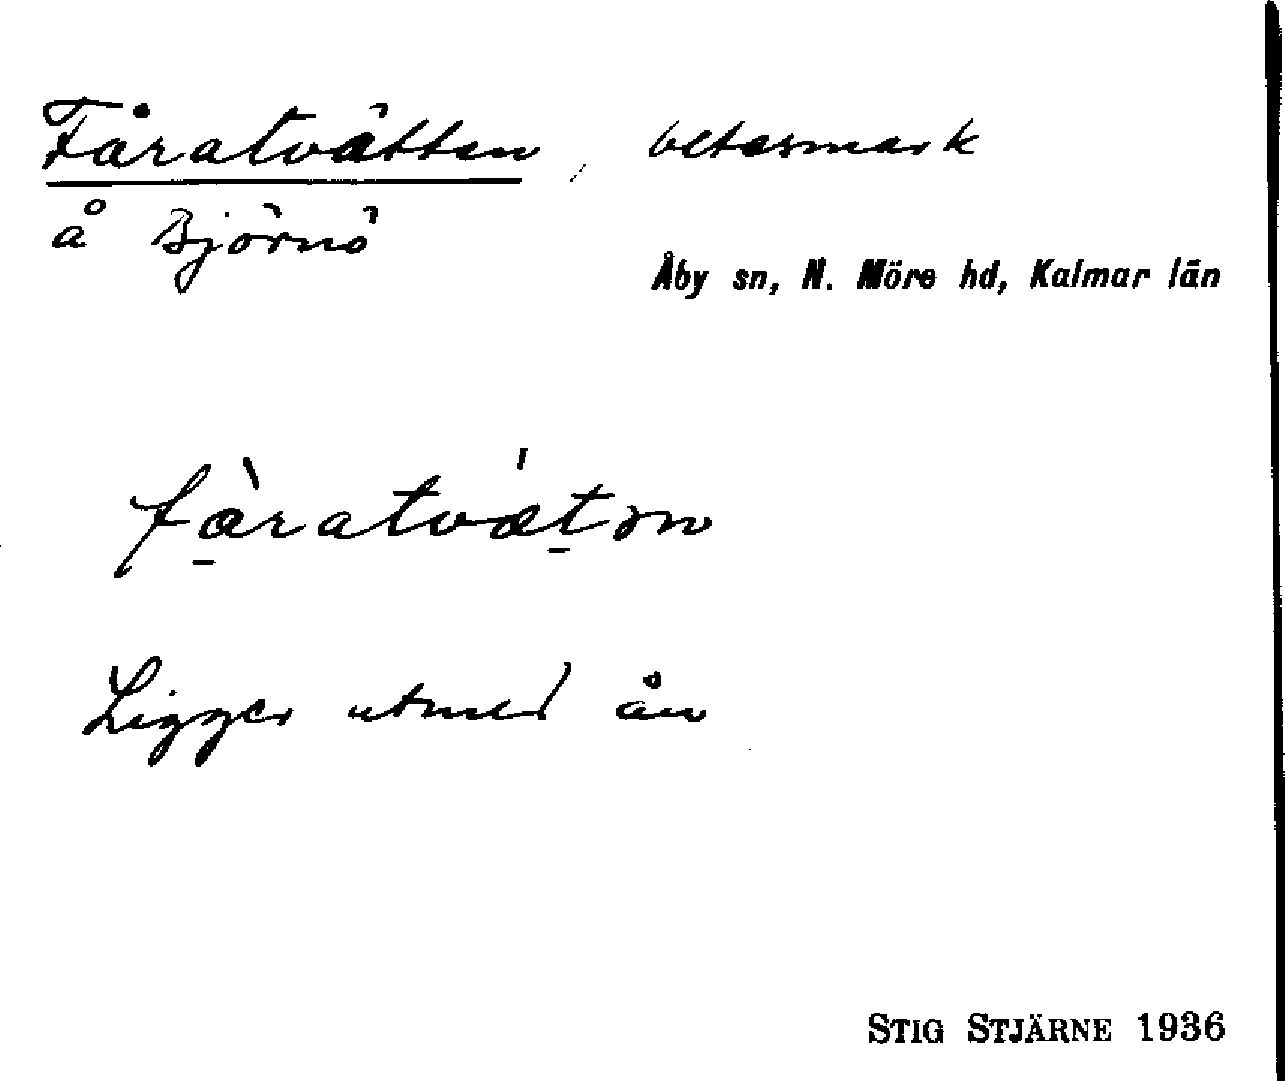 Fåratvätten, betesmark
å Björnö
Åby sn, N. Möre hd, Kalmar län
fàratvǽtən
Ligger utmed ån
STIG STJÄRNE 1936